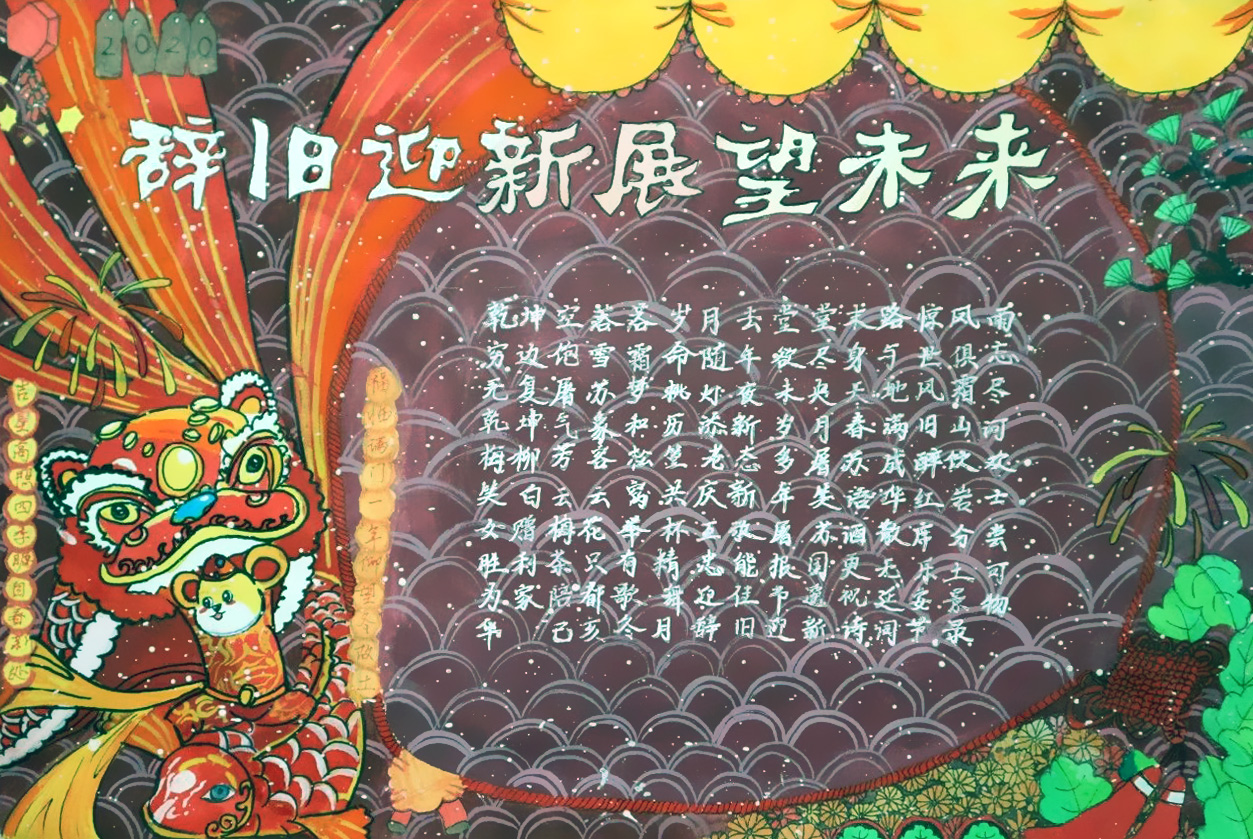 2020
辞旧迎新展望未来
乾坤空落落岁月去堂堂末路惊风雨
穷边饱雪霜命随年欲尽身与世俱忘
无复屠苏梦挑灯夜未央天地风霜尽
乾坤气象和历添新岁月春满旧山河
梅柳芳容松篁老态多屠苏成醉饮欢
笑白云云窝共庆新年笑语哗红岩士
女赠梅花举杯互敬屠苏酒散席分尝
胜利茶只有精忠能报国更无乐土可
为家陪都歌舞迎佳节遥祝延安景物
华 己亥冬月辞旧迎新诗词节录
吉星高照四季
福临满门一年